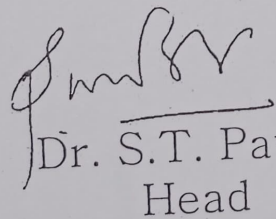 Dr. S.T. Pa
Head